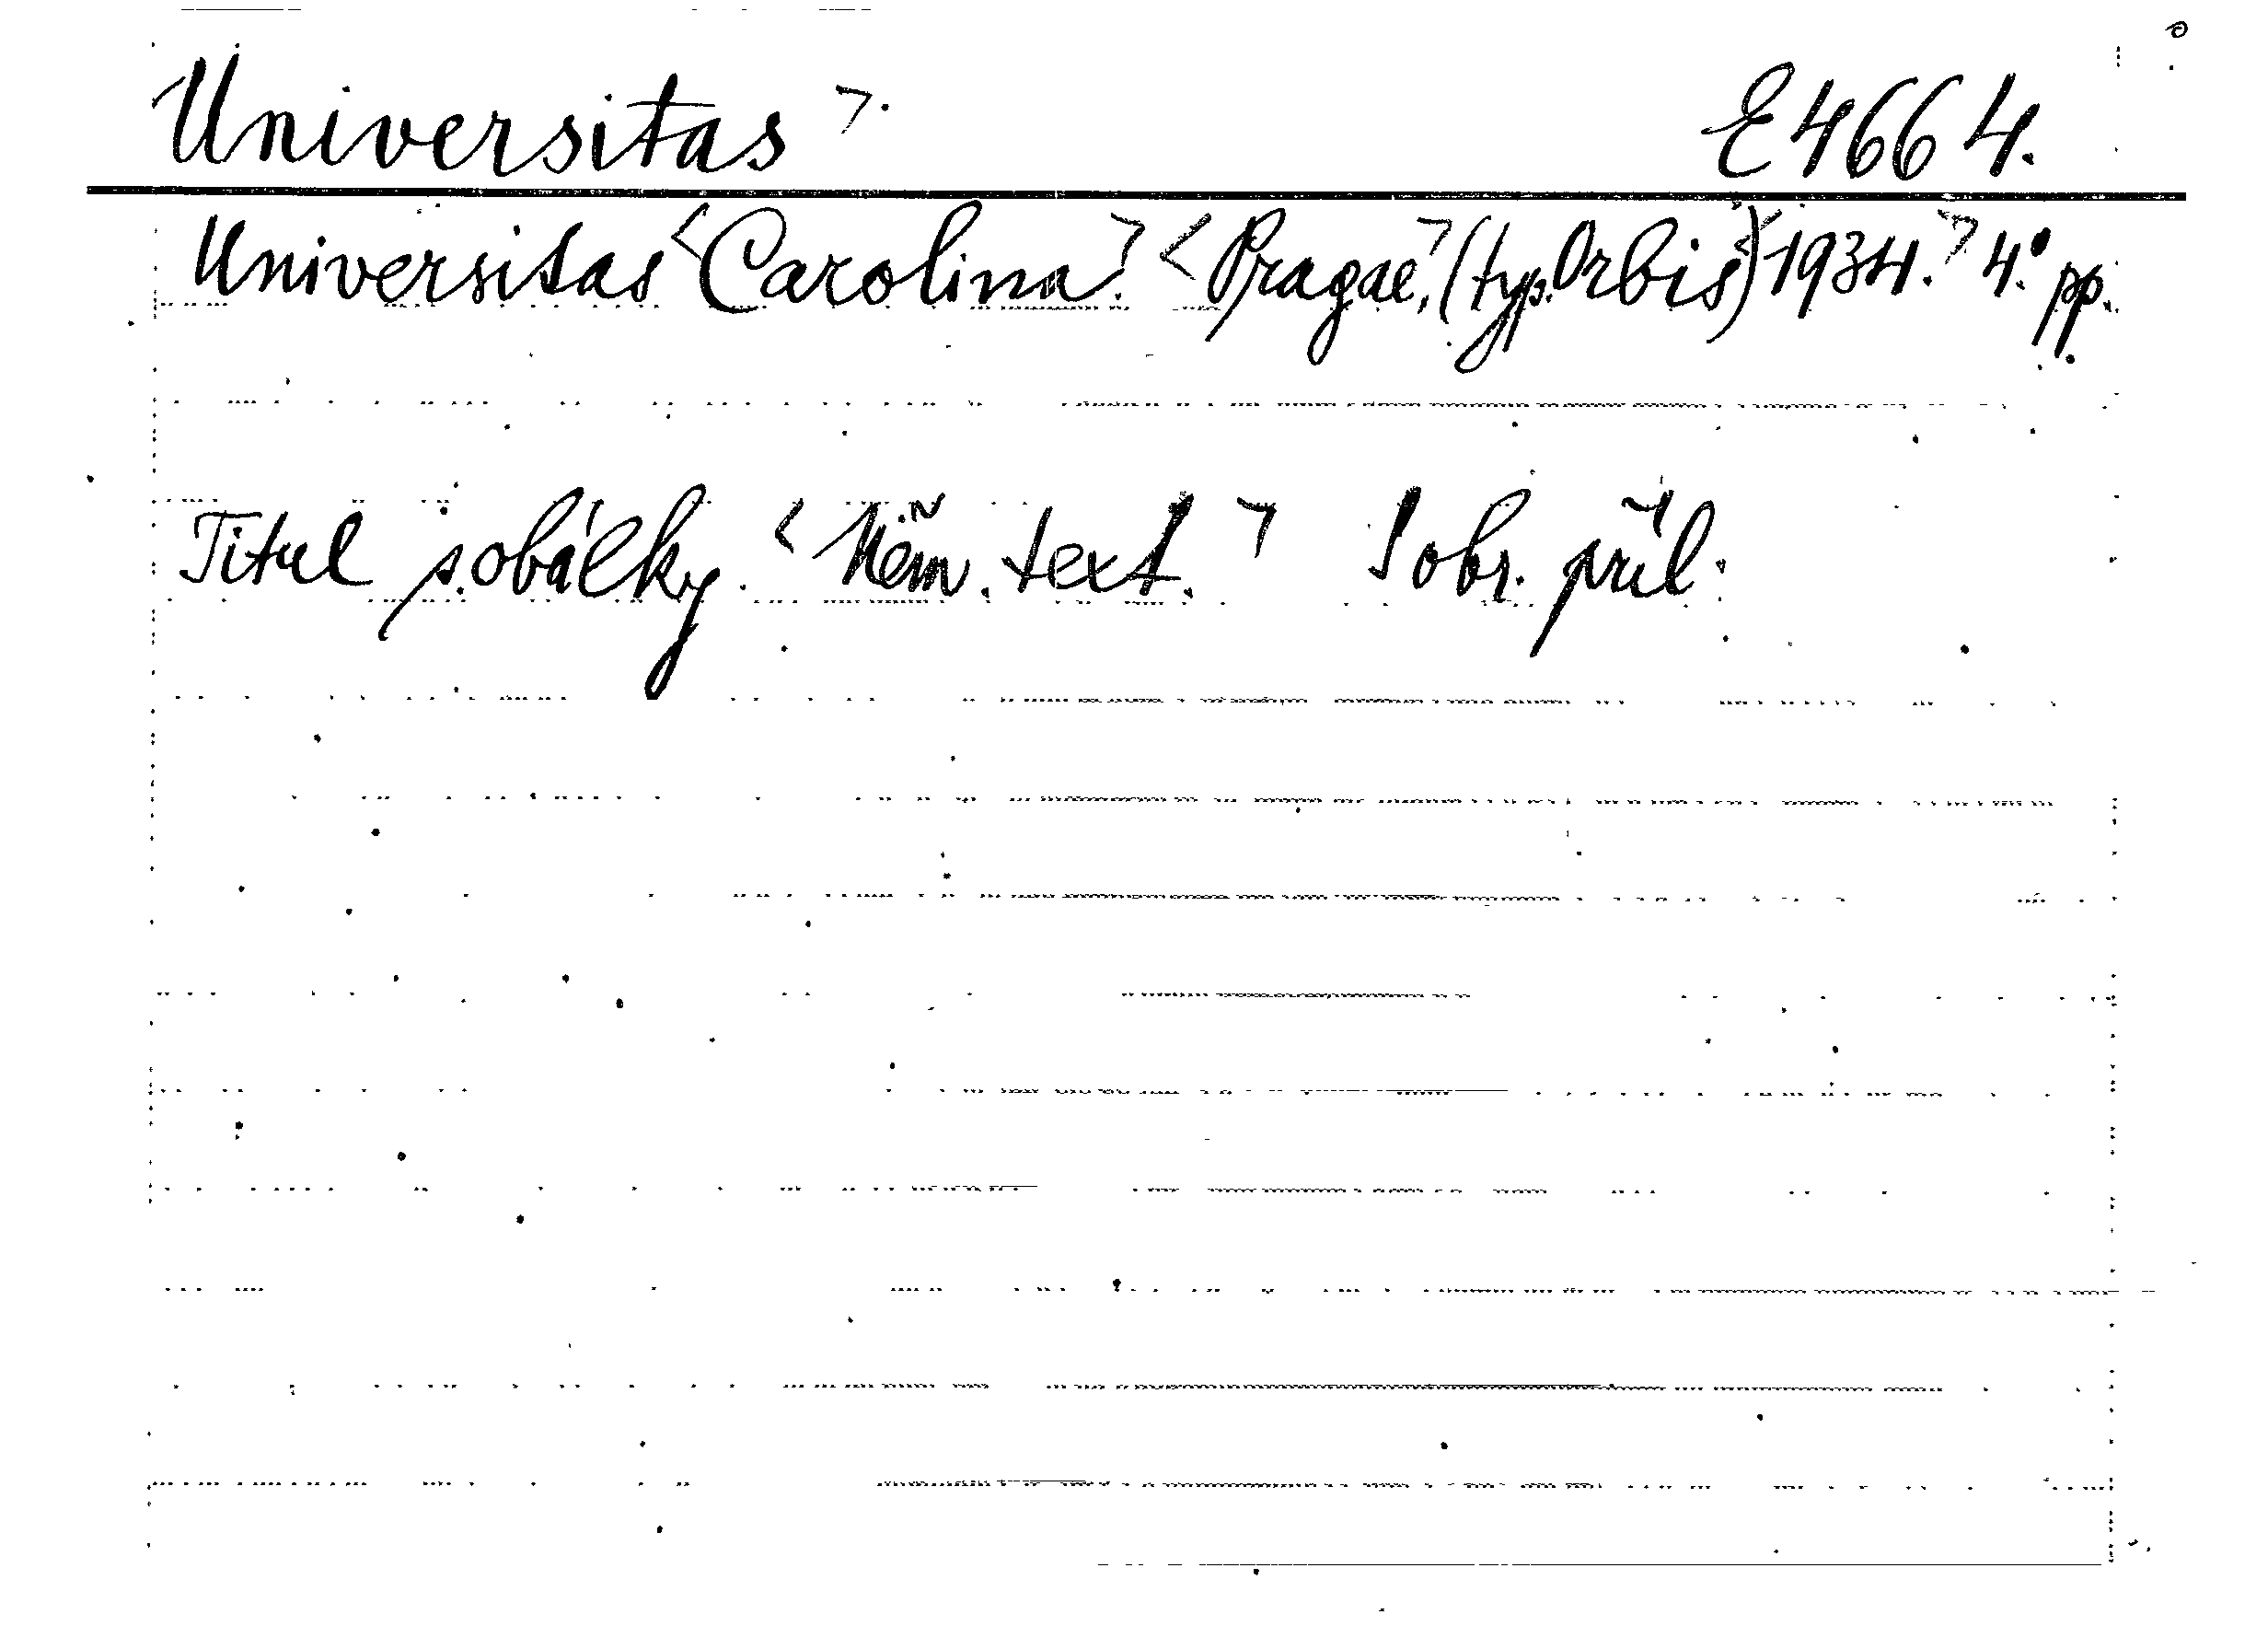 Universitas >. E 4664.
Universitas <Carolina.> <Pragae,> (typ. Orbis) <1934.> 4.° pp.
Titul s obálky. <Něm. text.> S obr. příl.